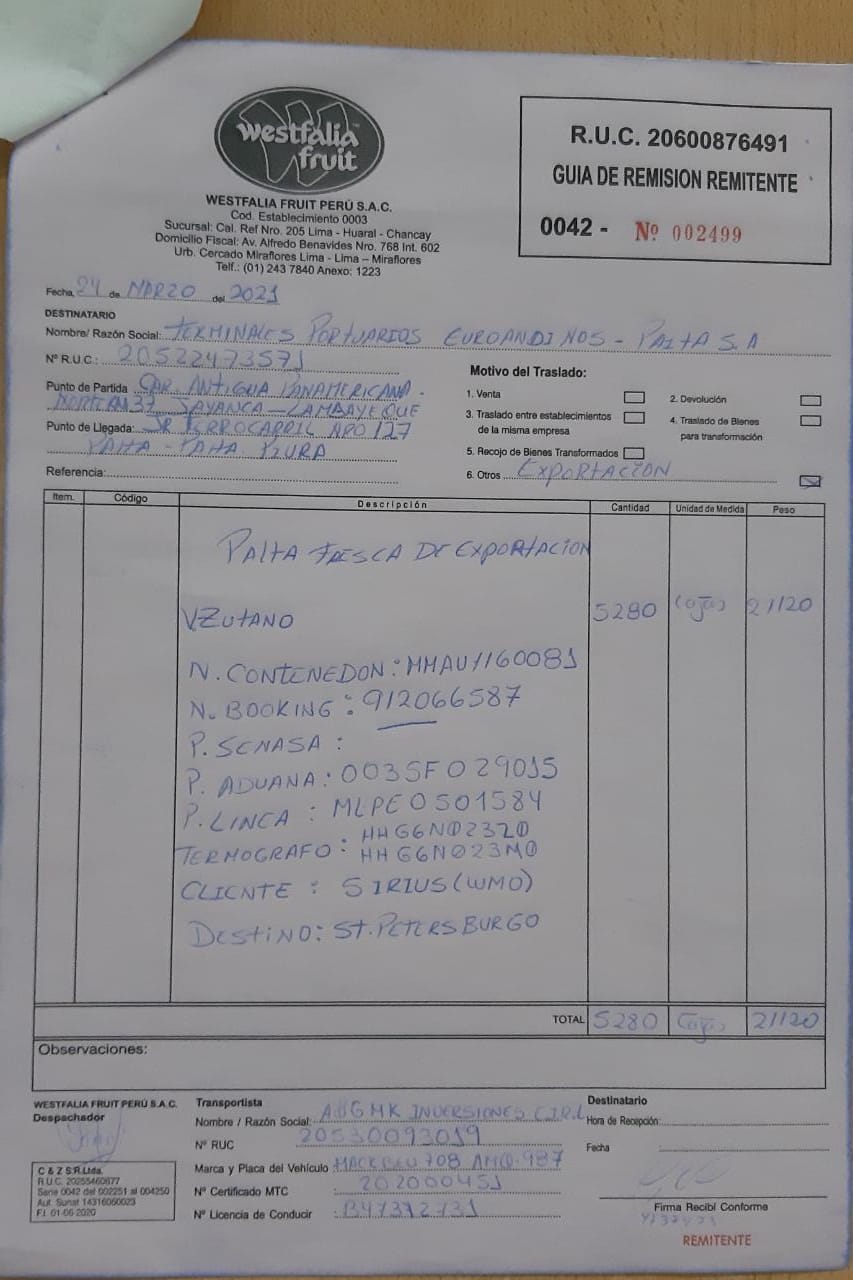 westfalia
fruit
WESTFALIA FRUIT PERÚ S.A.C.
Cod. Establecimiento 0003
Sucursal: Cal. Ref Nro. 205 Lima - Huaral - Chancay
Domicilio Fiscal: Av. Alfredo Benavides Nro. 768 Int. 602
Urb. Cercado Miraflores Lima - Lima – Miraflores
Telf.: (01) 243 7840 Anexo: 1223
R.U.C. 20600876491
GUIA DE REMISION REMITENTE
0042 - Nº 002499
Fecha, 24 de MARZO del 2021
DESTINATARIO
Nombre/ Razón Social: TERMINALES PORTUARIOS EUROANDINOS - PAITA S.A
Nº R.U.C.: 20522473571
Punto de Partida CAR. ANTIGUA PANAMERICANA
JAYANCA - LAMBAYEQUE
Punto de Llegada: JR FERROCARRIL 127
PAITA - PAITA. PIURA
Referencia:
Motivo del Traslado:
1. Venta
2. Devolución
3. Traslado entre establecimientos
de la misma empresa
4. Traslado de Bienes
para transformación
5. Recojo de Bienes Transformados
6. Otros EXPORTACION
Item. Código Descripción Cantidad Unidad de Medida Peso
PALTA FRESCA DE EXPORTACION
V.ZUTANO 5280 21120
N. CONTENEDON: MMAU1160081
N. BOOKING: 912066587
P. SENASA:
P. ADUANA: 003SF029015
P. LINEA: MLPE0501584
HHG6N02320
TERMOGRAFO: HHG6N023M0
CLIENTE: SIRIUS (WMO)
DESTINO: ST. PETERSBURGO
TOTAL 5280 21120
Observaciones:
WESTFALIA FRUIT PERÚ S.A.C.
Despachador
C & Z S.R.Ltda.
R.U.C. 20255460677
Serie 0042 del 002251 al 004250
Aut. Sunat 14316060023
F.I. 01-06-2020
Transportista
Nombre / Razón Social: INVERSIONES E.I.R.L
Nº RUC 20530093019
Marca y Placa del Vehículo: MACK 987
Nº Certificado MTC : 202000451
Nº Licencia de Conducir : B47372731
Destinatario
Hora de Recepción:
Fecha
Firma Recibí Conforme
REMITENTE